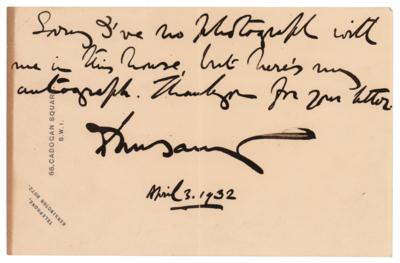 Sorry I've no photograph with
me in this house, but here's my
autograph. Thank you for your letter.
Dunsany
April 3. 1932
66, CADOGAN SQUARE,
S.W.1.
TELEPHONE,
KENSINGTON